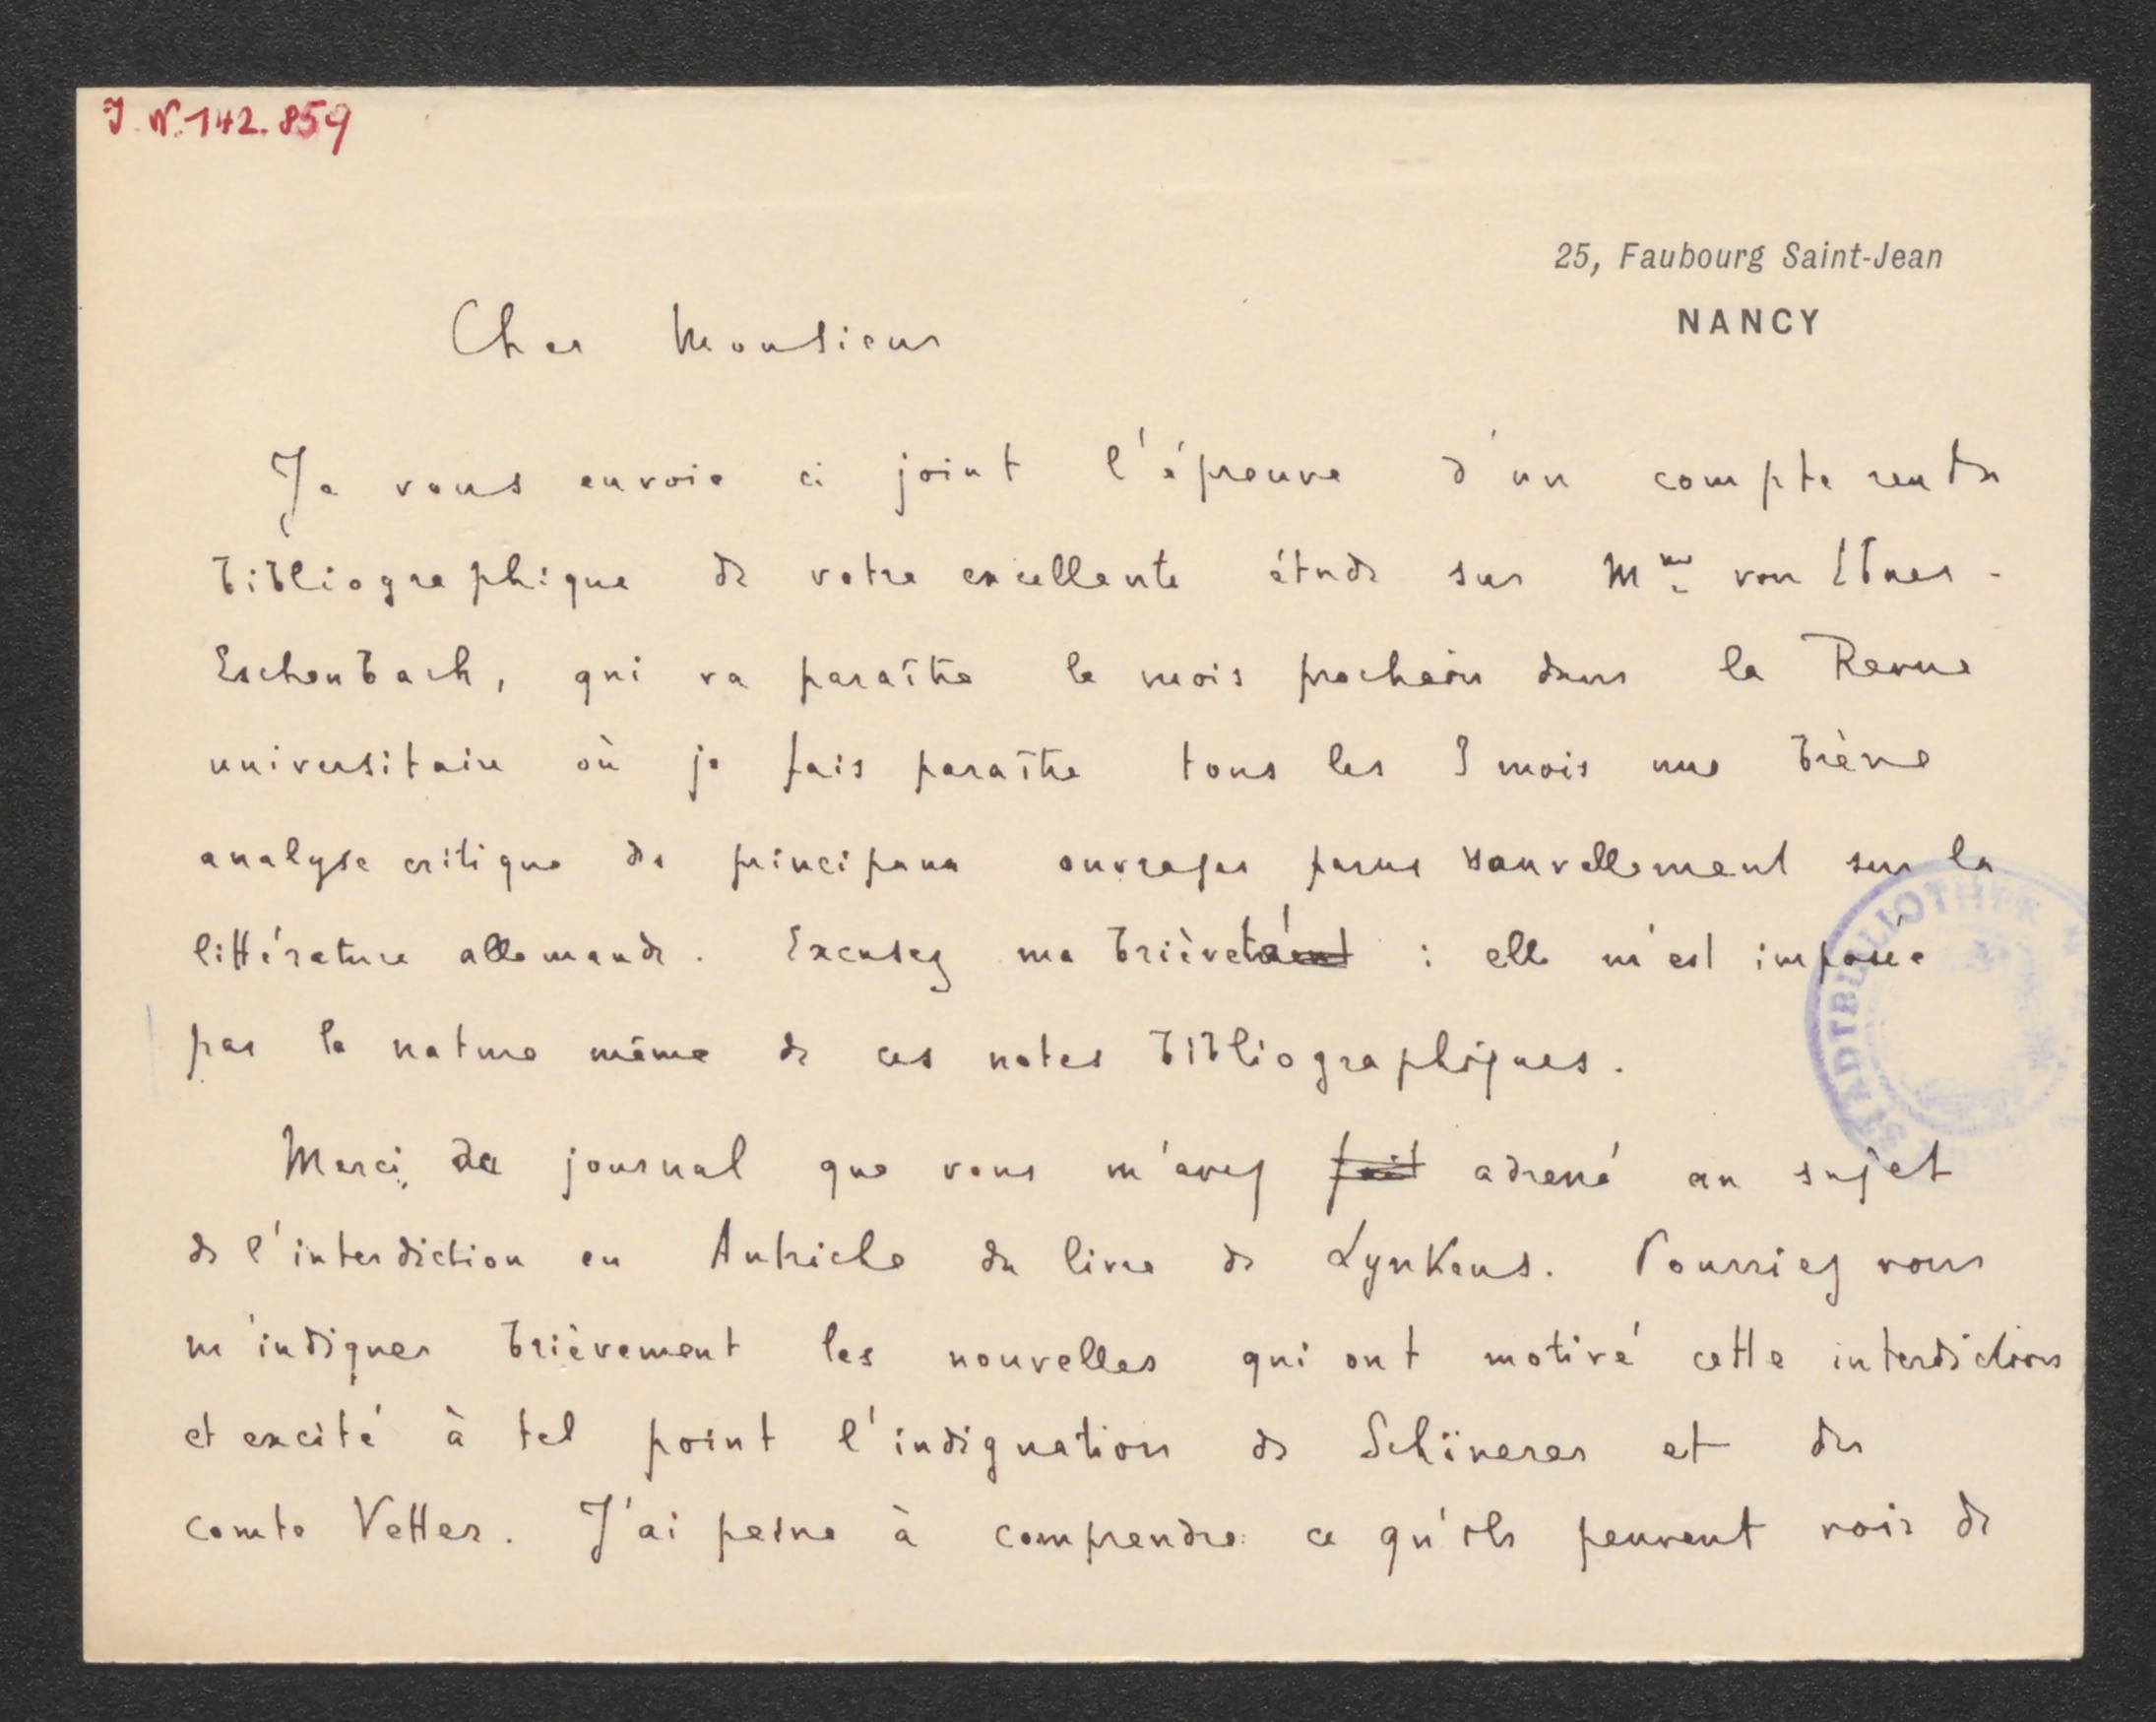 J. N. 142.859
25, Faubourg Saint-Jean
NANCY
Cher Monsieur
Je vous envoie ci joint l'épreuve d'un compte rendu
bibliographique de votre excellente étude sur Mme von Ebner-
Eschenbach, qui va paraître le mois prochain dans la Revue
universitaire où je fais paraître tous les 3 mois une brève
analyse critique de principaux ouvrages parus nouvellement sur la
littérature allemande. Excusez ma brièveté : elle m'est imposée
par la nature même de ces notes bibliographiques.
STADTBIBLIOTHEK
Merci du journal que vous m'avez fait adressé au sujet
de l'interdiction en Autriche du livre de Lynkeus. Pourriez vous
m'indiquer brièvement les nouvelles qui ont motivé cette interdiction
et excité à tel point l'indignation de Schönerer et du
comte Vetter. J'ai peine à comprendre ce qu'ils peuvent voir de